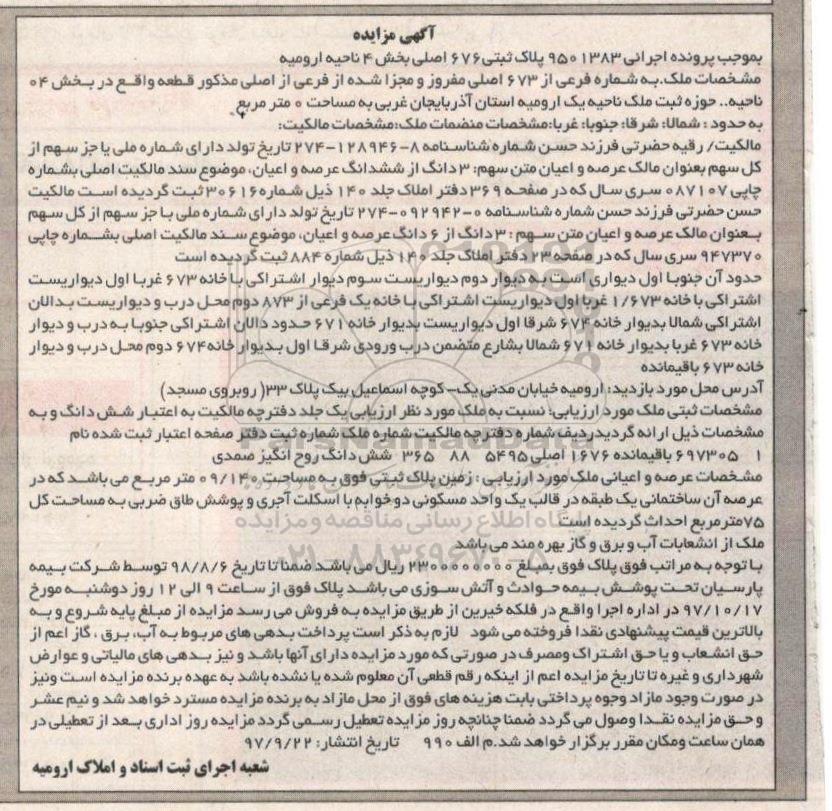 آگهی مزایده
بموجب پرونده اجرائی ۹۵۰۱۳۸۳ پلاک ثبتی ۶۷۶ اصلی بخش ۴ ناحیه ارومیه
مشخصات ملک.به شماره فرعی از ۶۷۳ اصلی مفروز و مجزا شده از فرعی از اصلی مذکور قطعه واقع در بخش ۰۴
ناحیه.. حوزه ثبت ملک ناحیه یک ارومیه استان آذربایجان غربی به مساحت ۰ متر مربع
به حدود : شمالا: شرقا: جنوبا: غربا:مشخصات منضمات ملک:مشخصات مالکیت:
مالکیت/ رقیه حضرتی فرزند حسن شماره شناسنامه ۸-۱۲۸۹۴۶-۲۷۴ تاریخ تولد دارای شماره ملی با جز سهم از
کل سهم بعنوان مالک عرصه و اعیان متن سهم: ۳ دانگ از ششدانگ عرصه و اعیان، موضوع سند مالکیت اصلی بشماره
چاپی ۰۸۷۱۰۷ سری سال که در صفحه ۳۶۹ دفتر املاک جلد ۱۴۰ ذیل شماره ۳۰۶۱۶ ثبت گردیده است مالکیت
حسن حضرتی فرزند حسن شماره شناسنامه ۰-۰۹۲۹۴۲-۲۷۴ تاریخ تولد دارای شماره ملی با جز سهم از کل سهم
بعنوان مالک عرصه و اعیان متن سهم : ۳ دانگ از ۶ دانگ عرصه و اعیان، موضوع سند مالکیت اصلی بشماره چاپی
۹۴۷۳۷۰ سری سال که در صفحه ۲۳ دفتر املاک جلد ۱۴۰ ذیل شماره ۸۸۴ ثبت گردیده است
حدود آن جنوبا اول دیواری است به دیوار دوم دیواریست سوم دیوار اشتراکی با خانه ۶۷۳ غربا اول دیواریست
اشتراکی با خانه ۱/۶۷۳ غربا اول دیواریست اشتراکی با خانه یک فرعی از ۸۷۳ دوم محل درب و دیواریست بدالان
اشتراکی شمالا بدیوار خانه ۶۷۴ شرقا اول دیواریست بدیوار خانه ۶۷۱ حدود دالان اشتراکی جنوبا به درب و دیوار
خانه ۶۷۳ غربا بدیوار خانه ۶۷۱ شمالا بشارع متضمن درب ورودی شرقا اول بدیوار خانه ۶۷۴ دوم محل درب و دیوار
خانه ۶۷۳ باقیمانده
آدرس محل مورد بازدید: ارومیه خیابان مدنی یک- کوچه اسماعیل بیک پلاک ۳۳( روبروی مسجد)
مشخصات ثبتی ملک مورد ارزیابی: نسبت به ملک مورد نظر ارزیابی یک جلد دفترچه مالکیت به اعتبار شش دانگ و به
مشخصات ذیل ارائه گردیدردیف شماره دفترچه مالکیت شماره ملک شماره ثبت دفتر صفحه اعتبار ثبت شده نام
۱ ۶۹۷۳۰۵ باقیمانده ۱۶۷۶ اصلی ۵۴۹۵ ۸۸ ۳۶۵ شش دانگ روح انگیز صمدی
مشخصات عرصه و اعیانی ملک مورد ارزیابی : زمین پلاک ثبتی فوق به مساحت ۰۹/۱۴۰ متر مربع می باشد که در
عرصه آن ساختمانی یک طبقه در قالب یک واحد مسکونی دو خوابه با اسکلت آجری و پوشش طاق ضربی به مساحت کل
۷۵ متر مربع احداث گردیده است
ملک از انشعابات آب و برق و گاز بهره مند می باشد
با توجه به مراتب فوق پلاک فوق بمبلغ ۲۳۰۰۰۰۰۰۰۰ ریال می باشد ضمنا تا تاریخ ۹۸/۸/۶ توسط شرکت بیمه
پارسیان تحت پوشش بیمه حوادث و آتش سوزی می باشد پلاک فوق از ساعت ۹ الی ۱۲ روز دوشنبه مورخ
۹۷/۱۰/۱۷ در اداره اجرا واقع در فلکه خیرین از طریق مزایده به فروش می رسد مزایده از مبلغ پایه شروع و به
بالاترین قیمت پیشنهادی نقدا فروخته می شود لازم به ذکر است پرداخت بدهی های مربوط به آب، برق ، گاز اعم از
حق انشعاب و یا حق اشتراک ومصرف در صورتی که مورد مزایده دارای آنها باشد و نیز بدهی های مالیاتی و عوارض
شهرداری و غیره تا تاریخ مزایده اعم از اینکه رقم قطعی آن معلوم شده یا نشده باشد به عهده برنده مزایده است ونیز
در صورت وجود مازاد وجوه پرداختی بابت هزینه های فوق از محل مازاد به برنده مزایده مسترد خواهد شد و نیم عشر
و حق مزایده نقدا وصول می گردد ضمنا چنانچه روز مزایده تعطیل رسمی گردد مزایده روز اداری بعد از تعطیلی در
همان ساعت ومکان مقرر برگزار خواهد شد.م الف ۹۹۰ تاریخ انتشار: ۹۷/۹/۲۲
شعبه اجرای ثبت اسناد و املاک ارومیه
ParsNamadData
پایگاه اطلاع رسانی مناقصه و مزایده